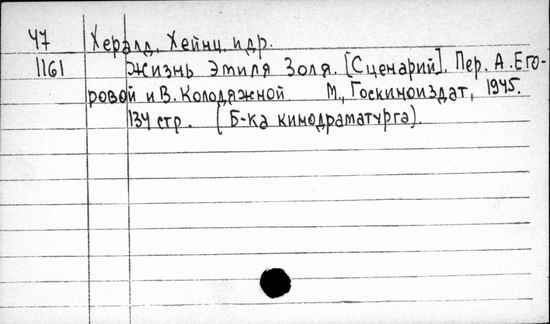 47 Хералд, Хейнц. и др.
1161 Жизнь Эмиля Золя. [Сценарий]. Пер. А. Его-
ровой и В. Колодяжной М., Госкиноиздат, 1945.
134 стр. (Б-ка кинодраматурга).